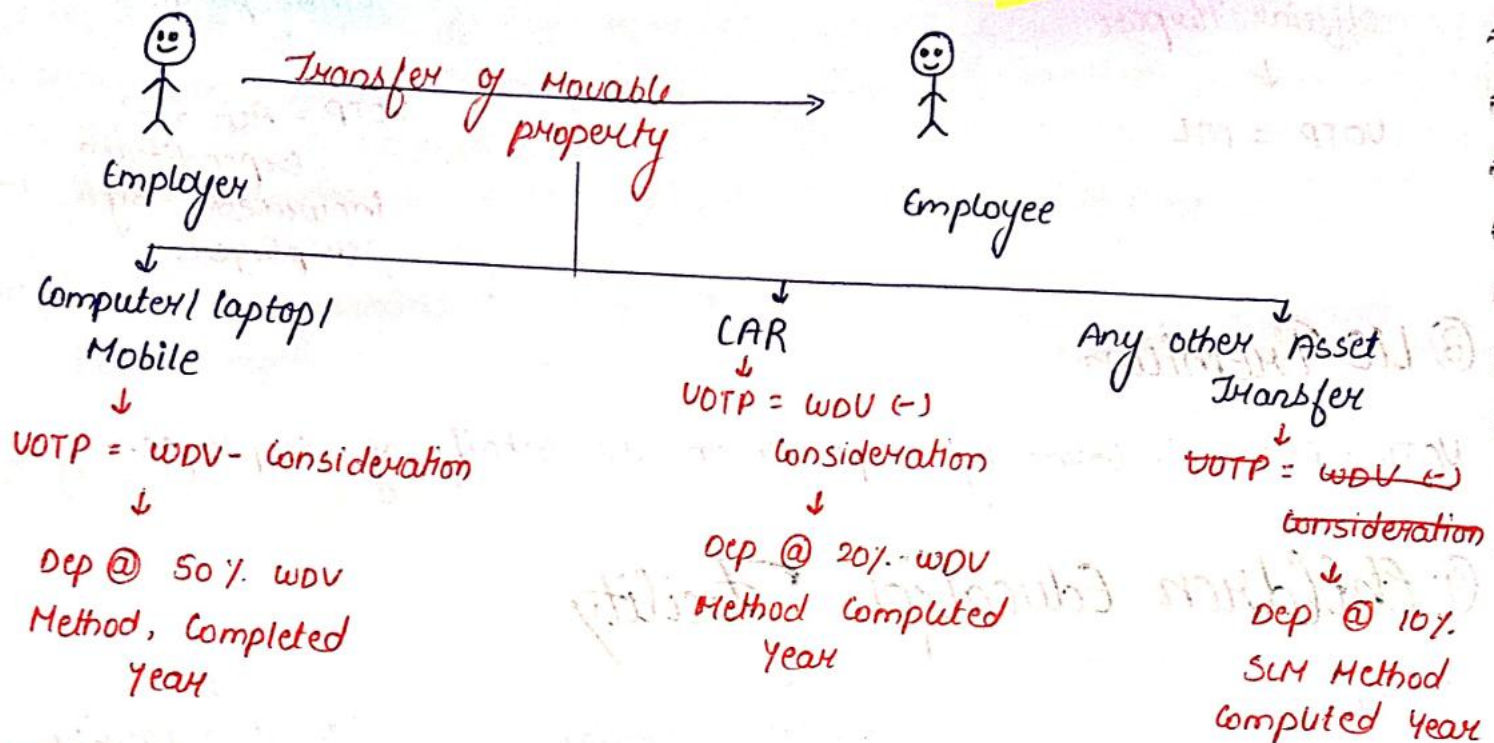 Transfer of Movable
property
Employer
Employee
Computer/ laptop/
Mobile
↓
VOTP = WDV - Consideration
↓
Dep @ 50%. WDV
Method, Completed
Year
CAR
↓
VOTP = WDV (-)
Consideration
↓
Dep @ 20%. WDV
Method Computed
Year
Any other Asset
Transfer
↓
VOTP = WDV (-)
Consideration
↓
Dep @ 10%.
SLM Method
Computed Year
VOTP = NIL